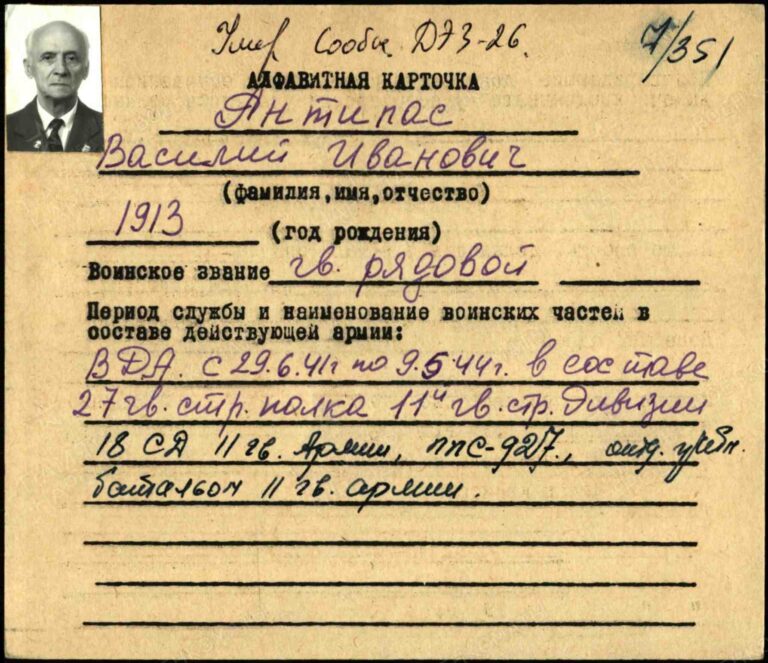 Умер Сообщ. ДЭЗ-26.
7/351
АЛФАВИТНАЯ КАРТОЧКА
Антипас
Василий Иванович
(фамилия,имя,отчество)
1913 (год рождения)
Воинское звание гв. рядовой
Период службы и наименование воинских частей в
составе действующей армии:
В ДА. с 29.6.41г по 9.5.44г. в составе
27 гв. стр. полка 11й гв. стр. дивизии
18 СД 11 гв. Армии, ппс-927, отд. учебн.
батальон 11 гв. армии.